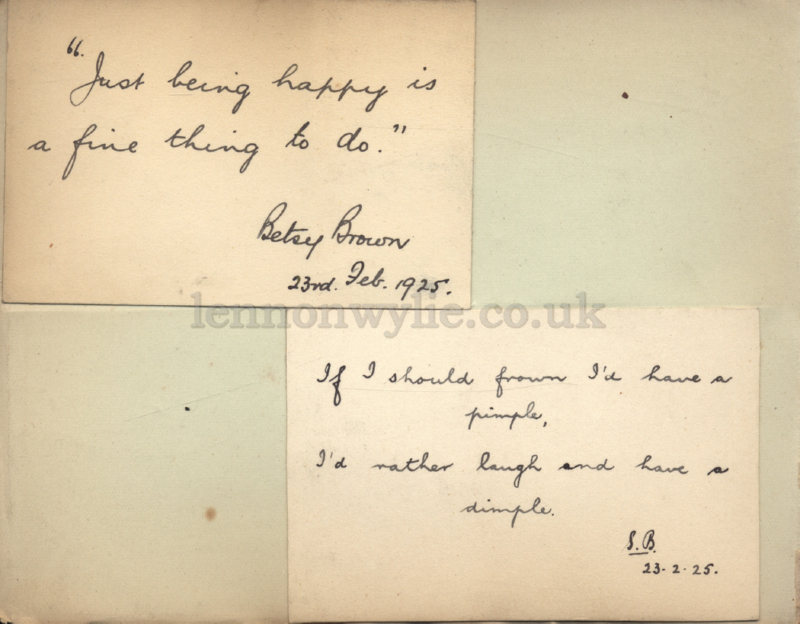 "Just being happy is
a fine thing to do."
Betsy Brown
23rd. Feb. 1925.
lennonwylie.co.uk
If I should frown I'd have a
pimple,
I'd rather laugh and have a
dimple.
S.B.
23-2-25.